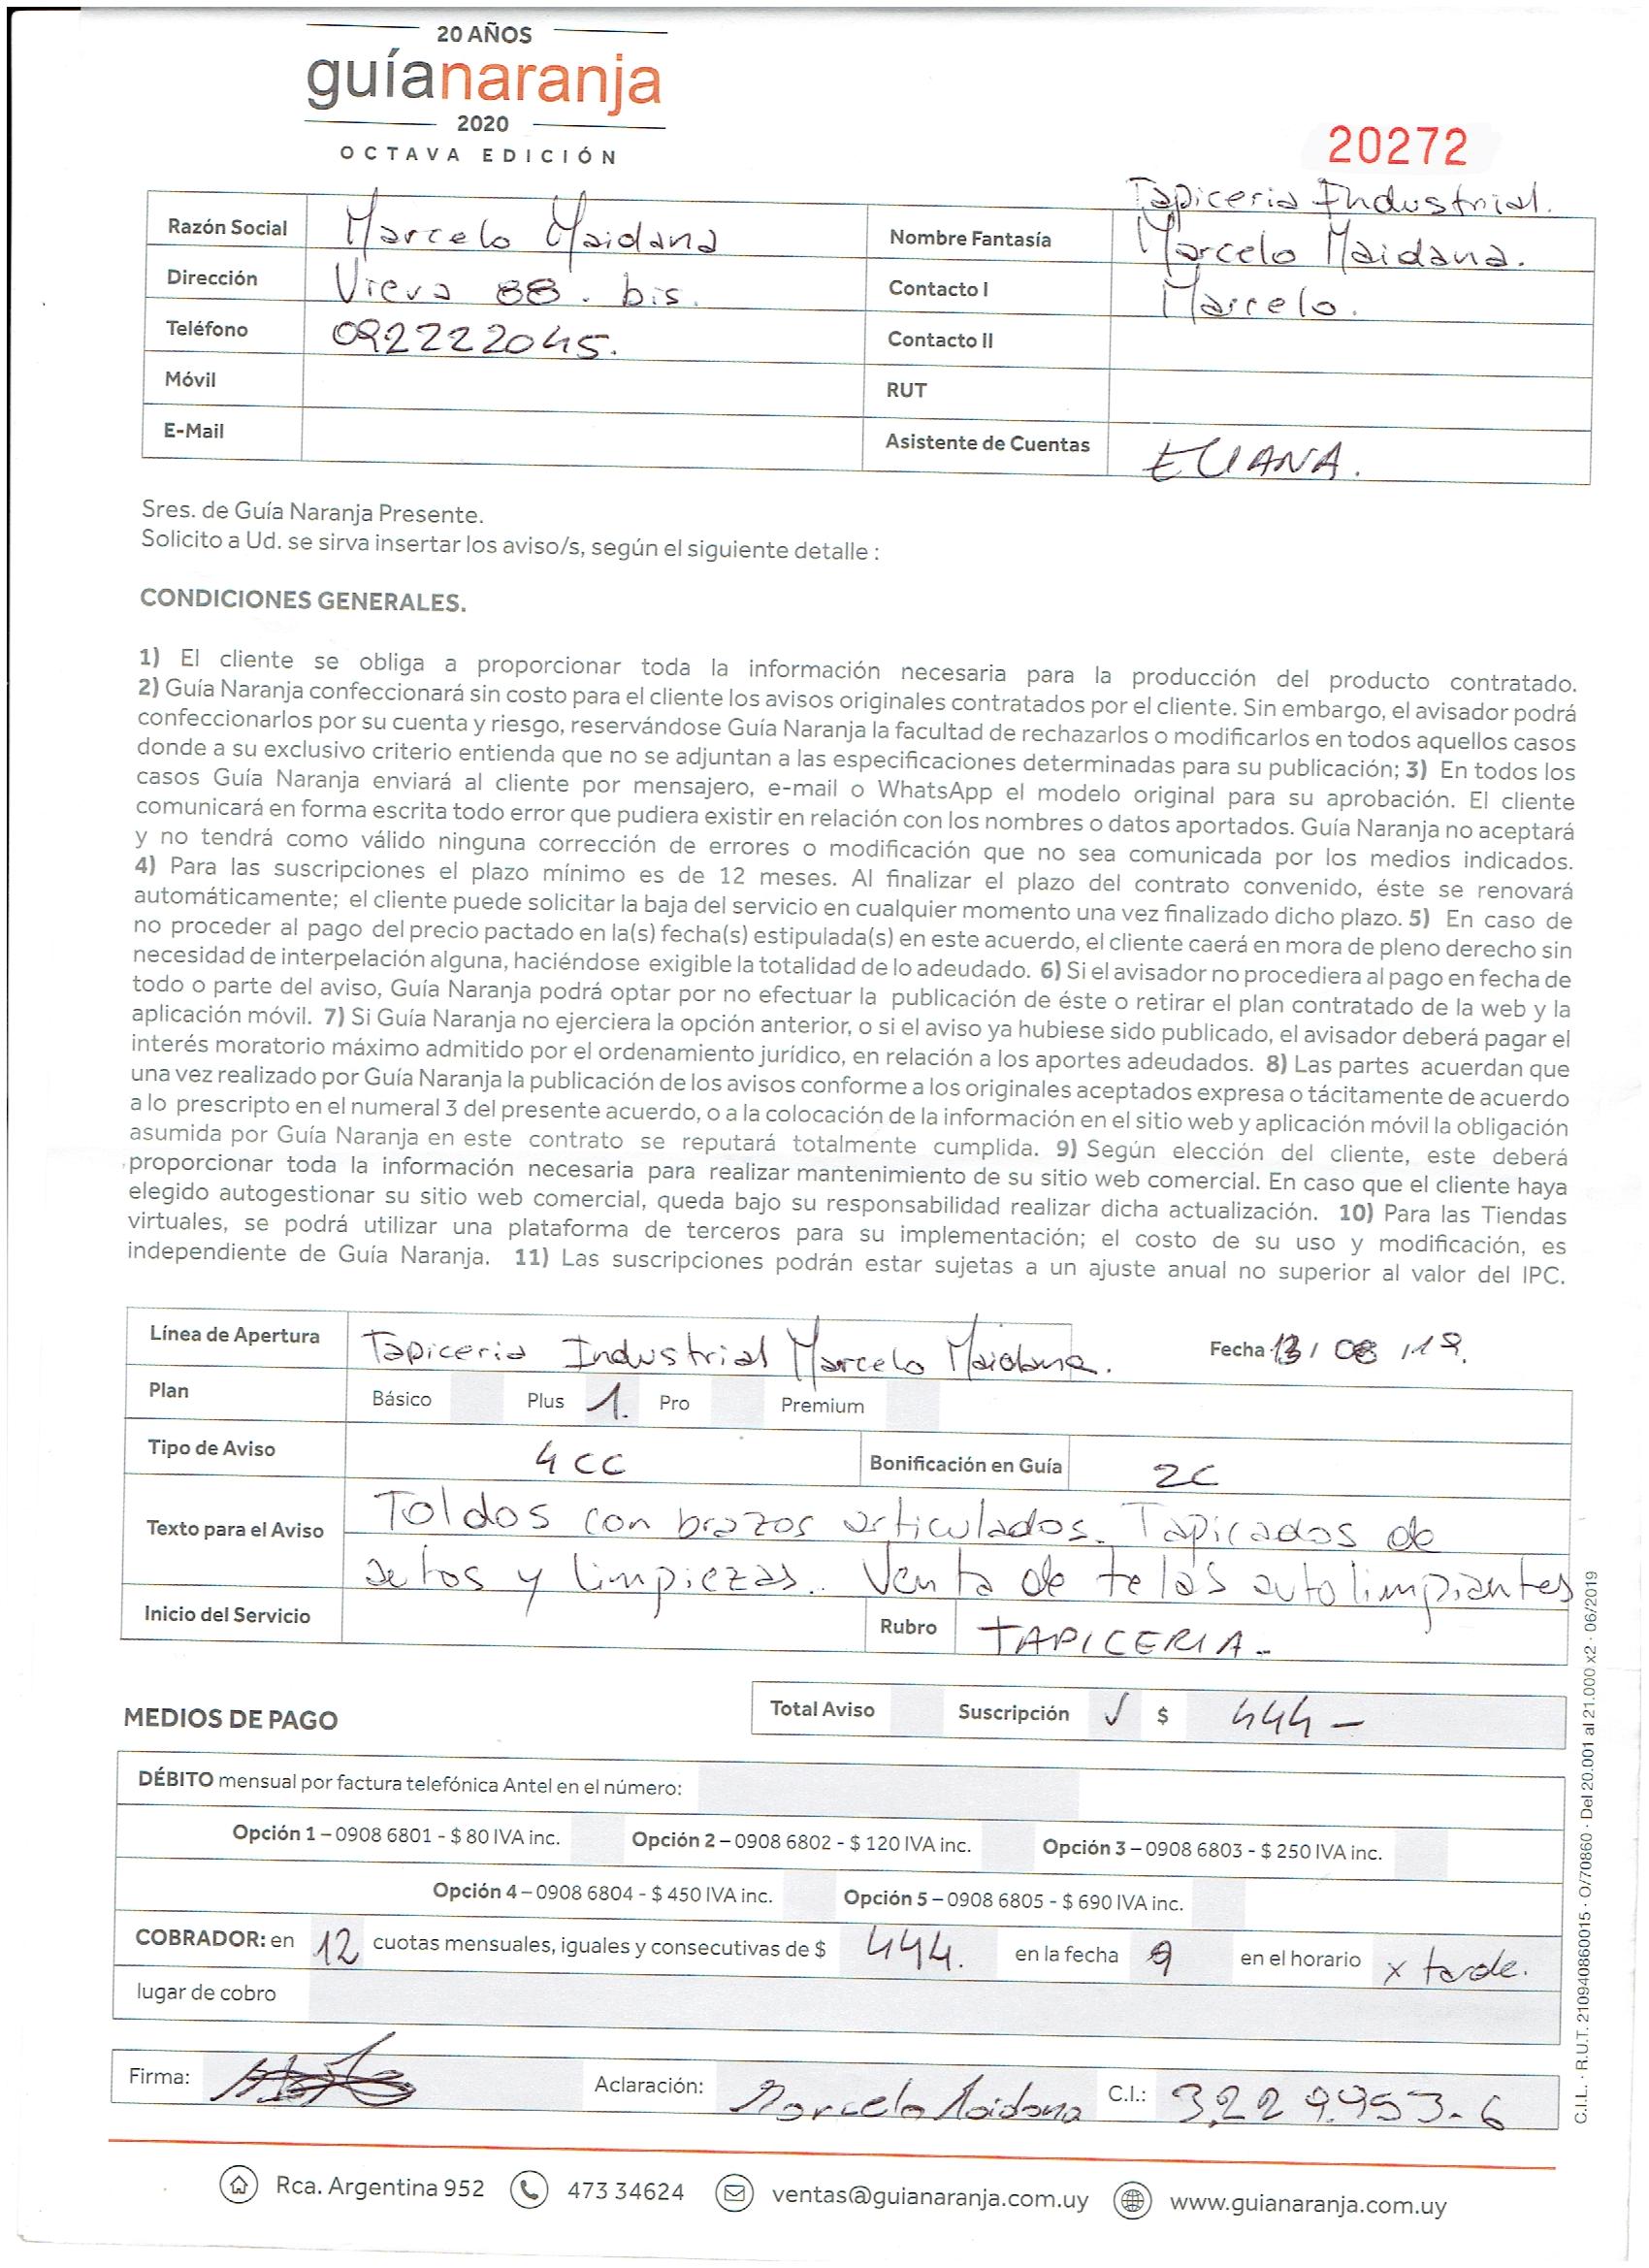 20 AÑOS
guíanaranja
2020
OCTAVA EDICIÓN
20272
Tapiceria Industrial.
Razón Social Marcelo Maidana Nombre Fantasía Marcelo Maidana.
Dirección Viera 88. bis. Contacto I Marcelo.
Teléfono 092222045. Contacto II
Móvil RUT
E-Mail Asistente de Cuentas ELIANA.
Sres. de Guía Naranja Presente.
Solicito a Ud. se sirva insertar los aviso/s, según el siguiente detalle :
CONDICIONES GENERALES.
1) El cliente se obliga a proporcionar toda la información necesaria para la producción del producto contratado.
2) Guía Naranja confeccionará sin costo para el cliente los avisos originales contratados por el cliente. Sin embargo, el avisador podrá
confeccionarlos por su cuenta y riesgo, reservándose Guía Naranja la facultad de rechazarlos o modificarlos en todos aquellos casos
donde a su exclusivo criterio entienda que no se adjuntan a las especificaciones determinadas para su publicación; 3) En todos los
casos Guía Naranja enviará al cliente por mensajero, e-mail o WhatsApp el modelo original para su aprobación. El cliente
comunicará en forma escrita todo error que pudiera existir en relación con los nombres o datos aportados. Guía Naranja no aceptará
y no tendrá como válido ninguna corrección de errores o modificación que no sea comunicada por los medios indicados.
4) Para las suscripciones el plazo mínimo es de 12 meses. Al finalizar el plazo del contrato convenido, éste se renovará
automáticamente; el cliente puede solicitar la baja del servicio en cualquier momento una vez finalizado dicho plazo. 5) En caso de
no proceder al pago del precio pactado en la(s) fecha(s) estipulada(s) en este acuerdo, el cliente caerá en mora de pleno derecho sin
necesidad de interpelación alguna, haciéndose exigible la totalidad de lo adeudado. 6) Si el avisador no procediera al pago en fecha de
todo o parte del aviso, Guía Naranja podrá optar por no efectuar la publicación de éste o retirar el plan contratado de la web y la
aplicación móvil. 7) Si Guía Naranja no ejerciera la opción anterior, o si el aviso ya hubiese sido publicado, el avisador deberá pagar el
interés moratorio máximo admitido por el ordenamiento jurídico, en relación a los aportes adeudados. 8) Las partes acuerdan que
una vez realizado por Guía Naranja la publicación de los avisos conforme a los originales aceptados expresa o tácitamente de acuerdo
a lo prescripto en el numeral 3 del presente acuerdo, o a la colocación de la información en el sitio web y aplicación móvil la obligación
asumida por Guía Naranja en este contrato se reputará totalmente cumplida. 9) Según elección del cliente, este deberá
proporcionar toda la información necesaria para realizar mantenimiento de su sitio web comercial. En caso que el cliente haya
elegido autogestionar su sitio web comercial, queda bajo su responsabilidad realizar dicha actualización. 10) Para las Tiendas
virtuales, se podrá utilizar una plataforma de terceros para su implementación; el costo de su uso y modificación, es
independiente de Guía Naranja. 11) Las suscripciones podrán estar sujetas a un ajuste anual no superior al valor del IPC.
Línea de Apertura Tapiceria Industrial Marcelo Maidana. Fecha 13 / 08 / 19.
Plan Básico Plus 1. Pro Premium
Tipo de Aviso 4 CC Bonificación en Guía 2C
Texto para el Aviso Toldos con brazos articulados. Tapicados de
autos y limpiezas.. Venta de telas autolimpiantes
Inicio del Servicio Rubro TAPICERIA-
MEDIOS DE PAGO Total Aviso Suscripción ✓ $ 444 -
DÉBITO mensual por factura telefónica Antel en el número:
Opción 1 – 0908 6801 - $ 80 IVA inc. Opción 2 – 0908 6802 - $ 120 IVA inc. Opción 3 – 0908 6803 - $ 250 IVA inc.
Opción 4 – 0908 6804 - $ 450 IVA inc. Opción 5 – 0908 6805 - $ 690 IVA inc.
COBRADOR: en 12 cuotas mensuales, iguales y consecutivas de $ 444. en la fecha 9 en el horario x tarde.
lugar de cobro
Firma: Aclaración: Marcelo Maidana C.I.: 3.229.953-6
Rca. Argentina 952 473 34624 ventas@guianaranja.com.uy www.guianaranja.com.uy
C.I.L. · R.U.T. 210940860015 · O/70860 · Del 20.001 al 21.000 x2 · 06/2019